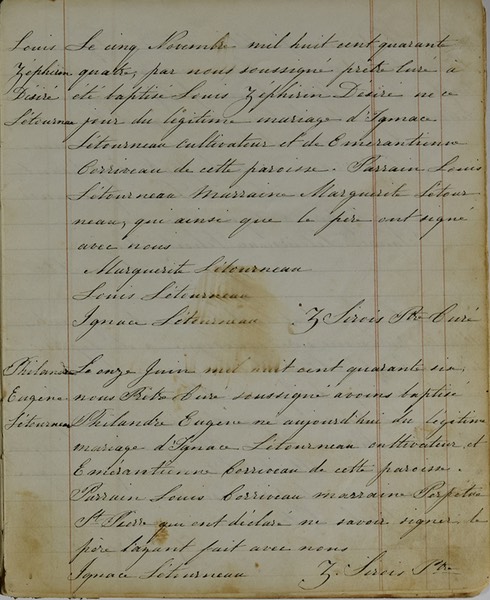 Louis Le cinq Novembre mil huit cent quarante
Zéphirin quatre, par nous soussigné prêtre curé a
Désiré été baptisé Louis Zephirin Désiré né ce
Létourneau jour du légitime mariage d'Ignace
Létourneau cultivateur et de Emérantienne
Corriveau de cette paroisse. Parrain Louis
Létourneau Marraine Marguerite Létour
neau, qui ainsi que le père ont signé
avec nous
Marguerite Létourneau
Louis Létourneau
Ignace Létourneau Z Sirois Ptre Curé
Philandre Le onze Juin mil huit cent quarante six
Eugene nous Ptre Curé soussigné avons baptisé
Létourneau Philandre Eugene né aujourd'hui du légitime
mariage d'Ignace Létourneau cultivateur et
Emérantienne Corriveau de cette paroisse.
Parrain Louis Corriveau marraine Perpétue
St Pierre qui ont déclaré ne savoir signer le
père l'ayant fait avec nous
Ignace Létourneau Z. Sirois Ptre